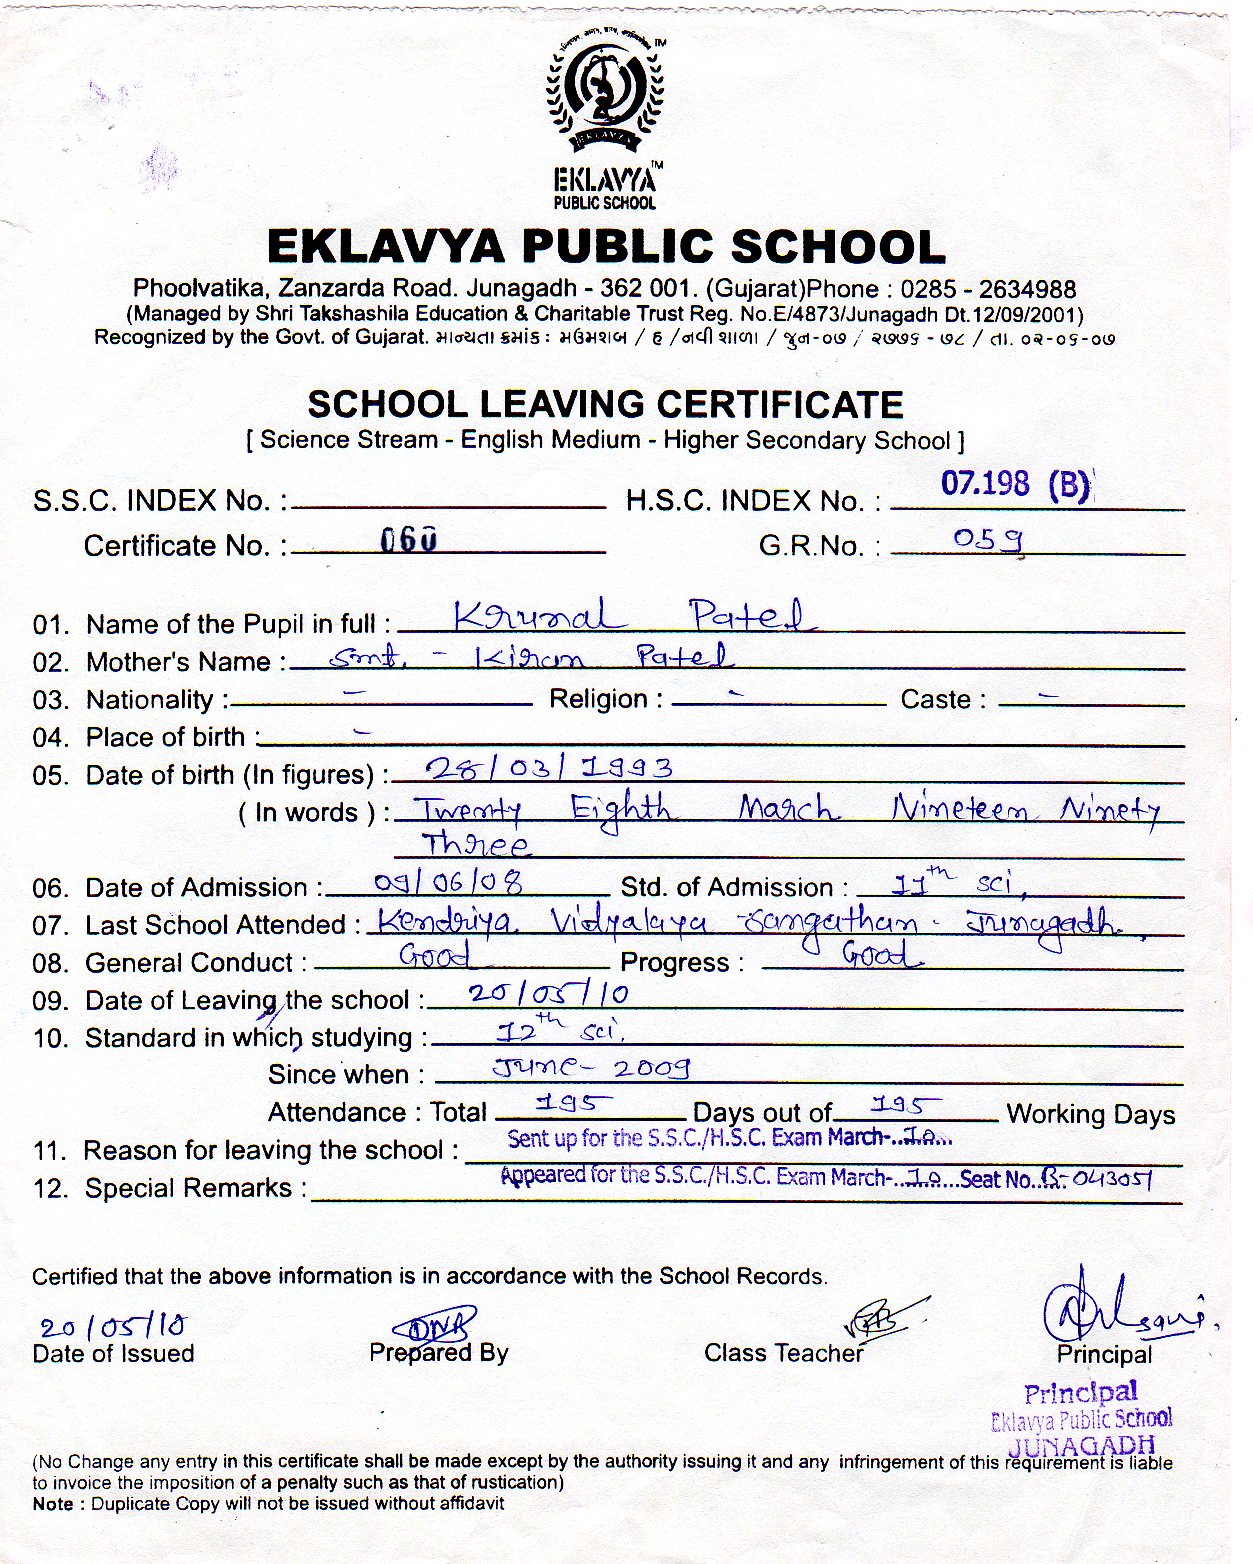 EKLAVYA
EKLAVYA™
PUBLIC SCHOOL
EKLAVYA PUBLIC SCHOOL
Phoolvatika, Zanzarda Road. Junagadh - 362 001. (Gujarat)Phone : 0285 - 2634988
(Managed by Shri Takshashila Education & Charitable Trust Reg. No.E/4873/Junagadh Dt.12/09/2001)
Recognized by the Govt. of Gujarat. માન્યતા ક્રમાંક : મઉમશબ / હ /નવી શાળા / જુન-૦૭ / ૨૭૭૬ - ૭૮ / તા. ૦૨-૦૬-૦૭
SCHOOL LEAVING CERTIFICATE
[ Science Stream - English Medium - Higher Secondary School ]
S.S.C. INDEX No. : H.S.C. INDEX No. : 07.198 (B)
Certificate No. : 060 G.R.No. : 059
01. Name of the Pupil in full : Krunal Patel
02. Mother's Name : Smt. - Kiran Patel
03. Nationality : - Religion : - Caste : -
04. Place of birth : -
05. Date of birth (In figures) : 28/03/1993
( In words ) : Twenty Eighth March Nineteen Ninety
Three
06. Date of Admission : 09/06/08 Std. of Admission : 11th sci,
07. Last School Attended : Kendriya Vidyalaya Sangathan - Junagadh.
08. General Conduct : Good Progress : Good
09. Date of Leaving the school : 20/05/10
10. Standard in which studying : 12th sci,
Since when : June - 2009
Attendance : Total 195 Days out of 195 Working Days
11. Reason for leaving the school : Sent up for the S.S.C./H.S.C. Exam March-..10...
12. Special Remarks : Appeared for the S.S.C./H.S.C. Exam March-..10...Seat No..B-043051
Certified that the above information is in accordance with the School Records.
20/05/10
Date of Issued Prepared By Class Teacher Principal
Principal
Eklavya Public School
JUNAGADH
(No Change any entry in this certificate shall be made except by the authority issuing it and any infringement of this requirement is liable
to invoice the imposition of a penalty such as that of rustication)
Note : Duplicate Copy will not be issued without affidavit